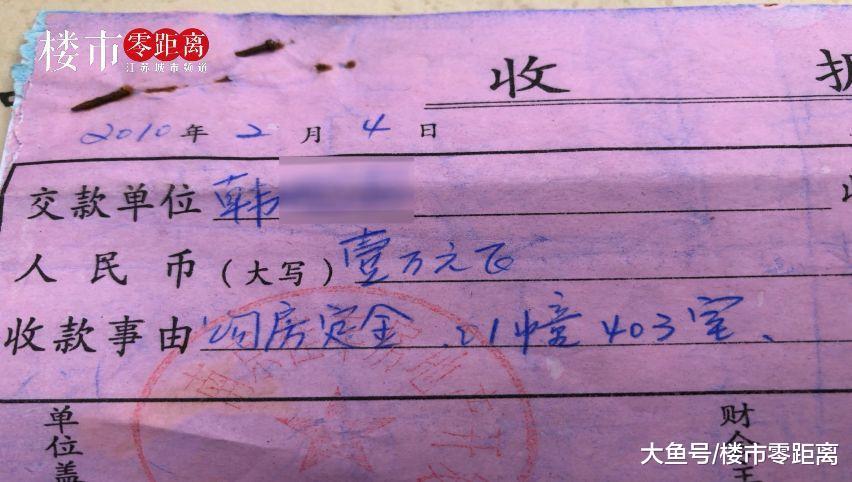 楼市零距离
江苏城市频道
收 据
2010年2月4日
交款单位 韩
人民币(大写)壹万元正
收款事由 购房定金、21幢403室、
单位盖
财会主
大鱼号/楼市零距离